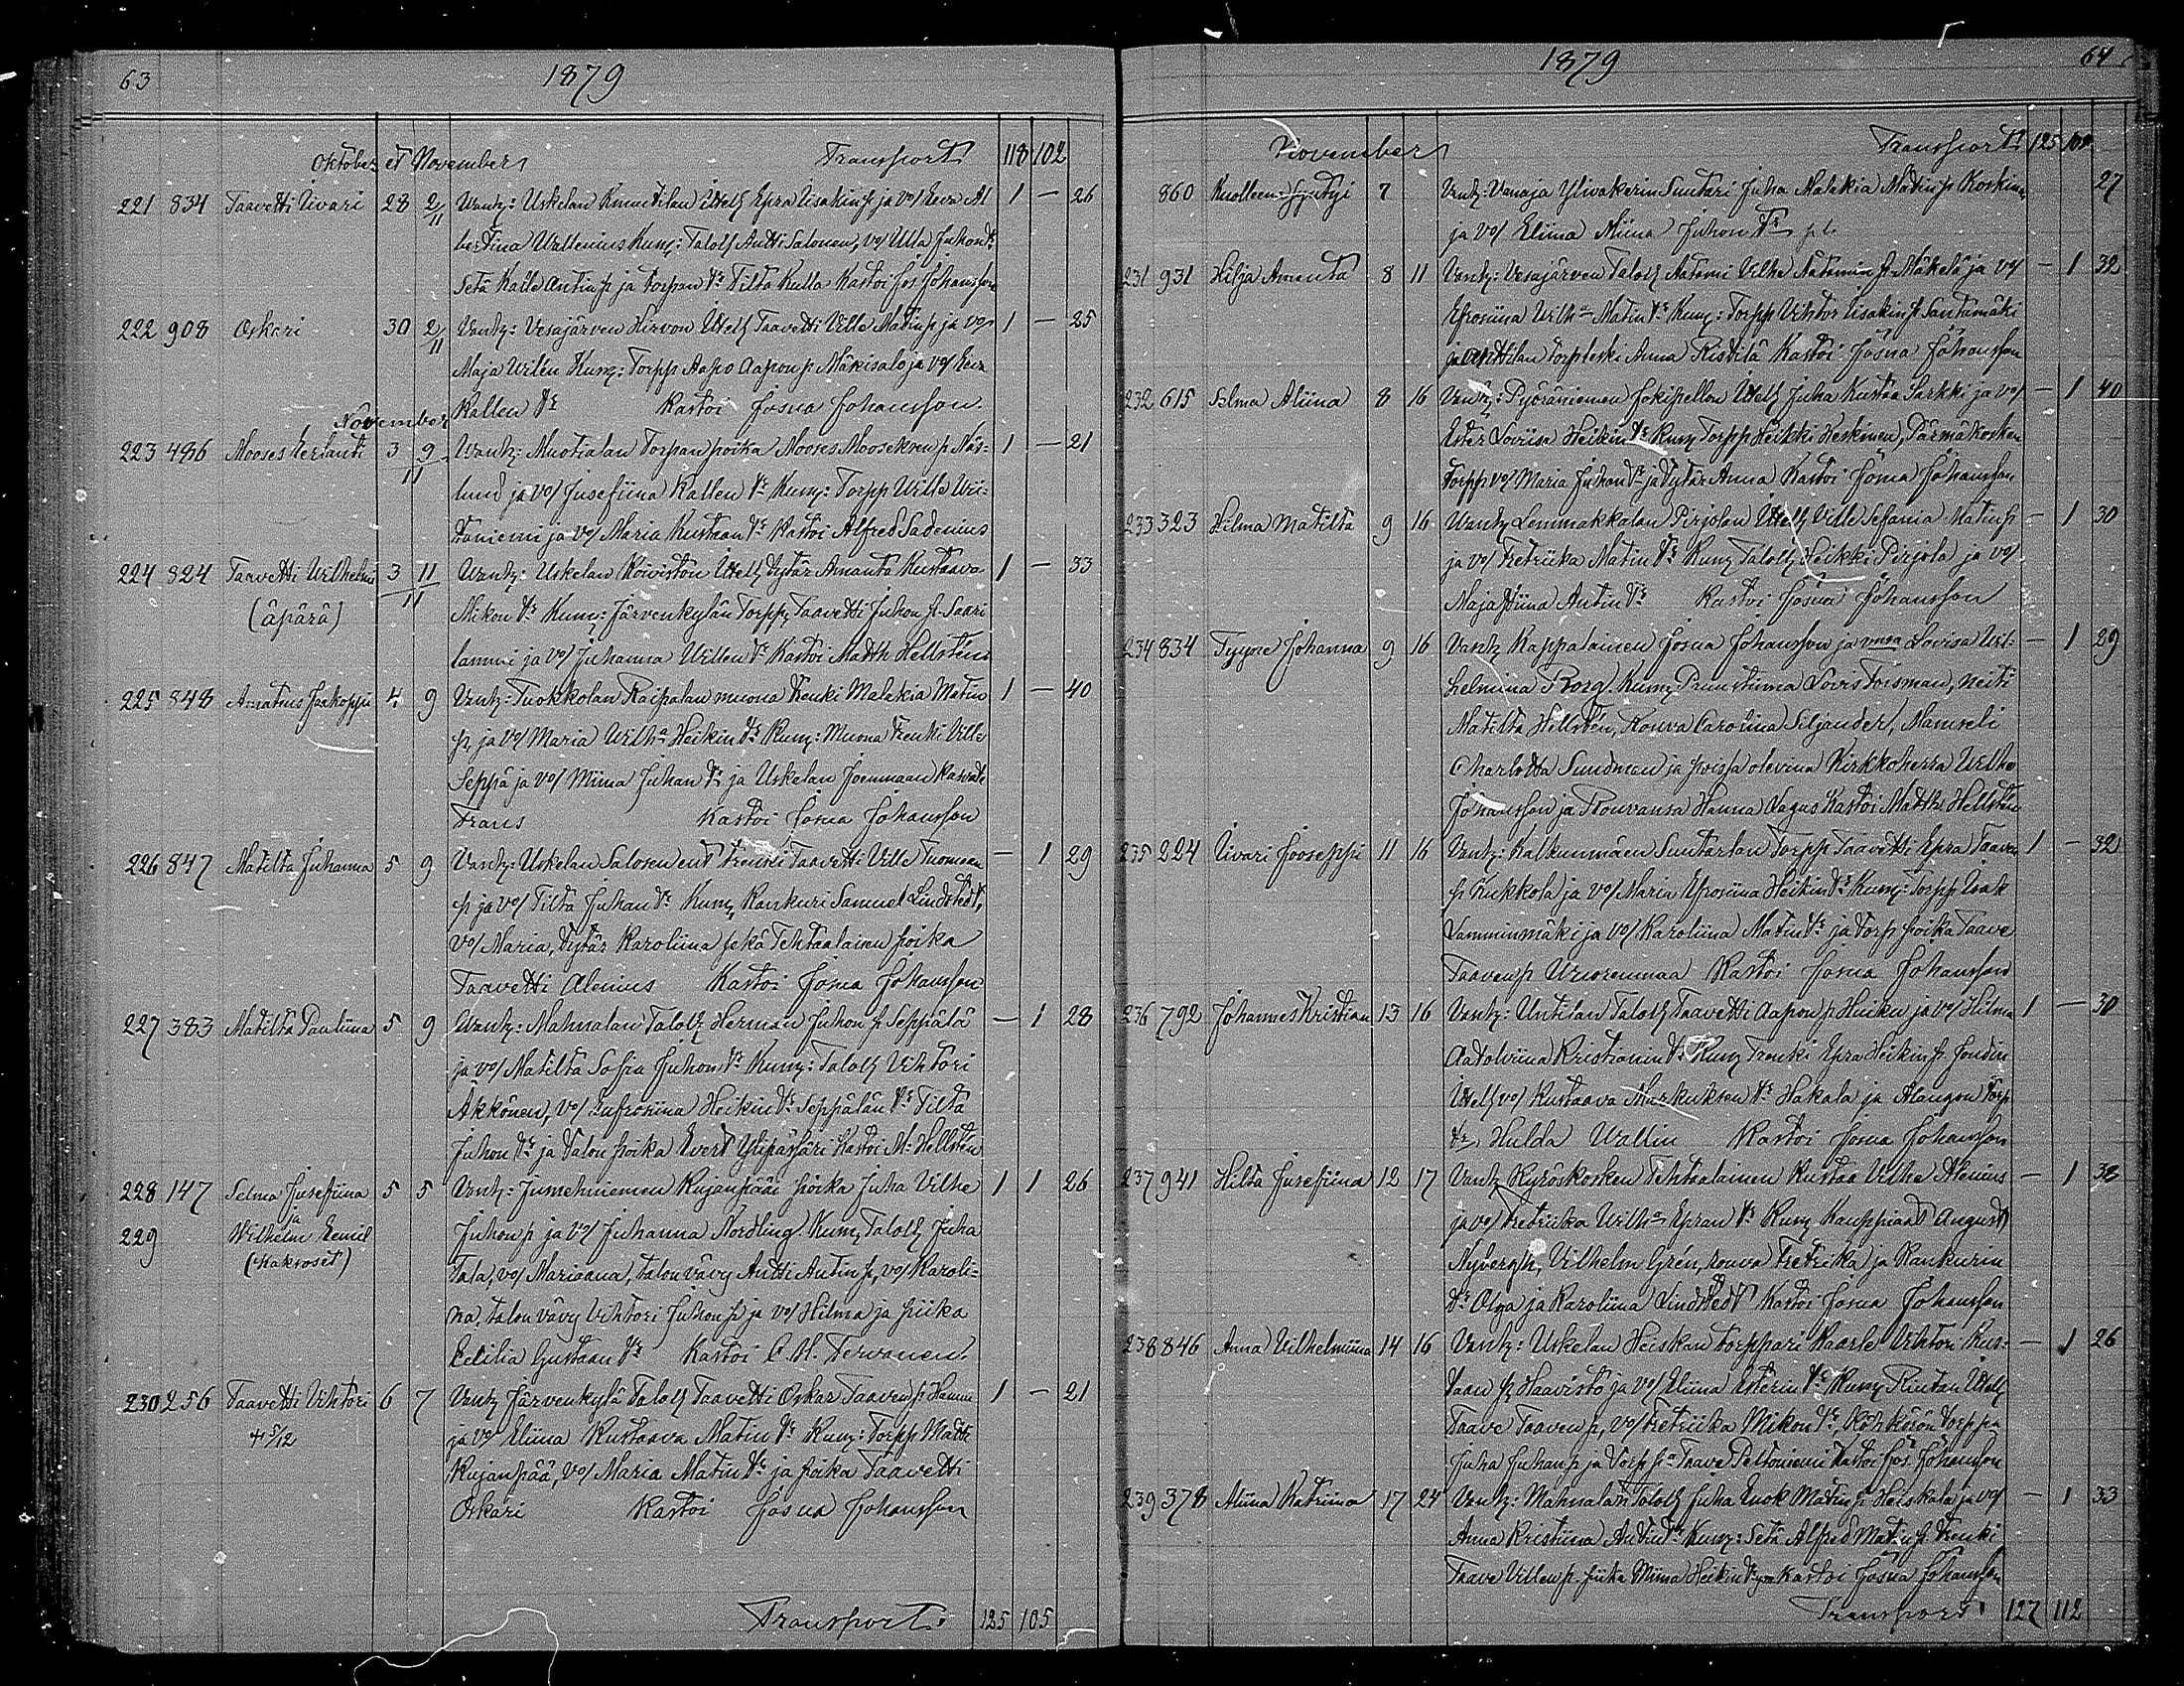 63
1879
Oktober et November Transport 118 102
221 834 Taavetti Iivari 28 2/11 Vanh: Uskelan Knuutilan Itsell Epra Iisakin p ja vo/ Eeva Al 1 — 26
bertina Wallenius Kum: Talol Antti Salonen, vo/ Ulla Juhon tr
Setä Kalle Antin p ja torpan tr Tilta Kulla Kastoi Jos Johansson
222 908 Oskari 30 2/11 Vanh: Vesajärven Hirvon Itsell Taavetti Ville Matin p ja vo 1 — 25
Maja Vilen Kum: Torpp Aapo Aapon p Mäkisalo ja vo/ Eeva
Kallen tr Kastoi Josua Johansson.
November
223 486 Mooses Eerlanti 3 9/11 Vanh: Muotialan Torpan poika Mooses Mooseksen p Näs- 1 — 21
lund ja vo/ Jusefiina Kallen tr Kum: Torpp Wille Vii-
taniemi ja vo/ Maria Kustaan tr Kastoi Alfred Sadenius
224 824 Taavetti Wilhelmi 3 11/11 Vanh: Uskelan Koiviston Itsell tytär Amanta Kustaava 1 — 33
(äpärä) Mikon tr Kum: Järvenkylän Torpp Taavetti Juhon p Saari
lammi ja vo/ Juhanna Villen tr Kastoi Matth Hellstén
225 848 Amatus Jaakoppi 4 9 Vanh: Tuokkolan Raipalan muona Renki Malakia Matin 1 — 40
p, ja vo/ Maria Wilha Heikin tr Kum: Muona Renki Ville
Seppä ja vo/ Miina Juhan tr ja Uskelan Joenmaan
Frans Kastoi Josua Johansson
226 847 Matilta Juhanna 5 9 Vanh: Uskelan Salosen ent trenki Taavetti Ville Tuomaan — 1 29
p ja vo/ Tilta Juhan tr Kum, Kankuri Samuel Lindstedt,
vo/ Maria, tytär Karoliina sekä Tehtaalaisen poika
Taavetti Alenius Kastoi Josua Johansson
227 383 Matilta Pauliina 5 9 Vanh: Mahnalan Talol Herman Juhon p Seppälä — 1 28
ja vo/ Matilta Sofia Juhon tr Kum: Talol Vihtori
Äkkönen, vo/ Eufrosiina Heikin tr Seppälän tr Tilta
Juhon tr ja talon poika Evert Ylipässäri Kastoi M. Hellstén
228 147 Selma Jusefiina 5 5 Vanh: Jumehniemen Kujanpään poika Juha Vilhe 1 1 26
ja
229 Wilhelm Eemil Juhon p ja vo/ Juhanna Nordling. Kum, Talol Juha
(Kakroset) Tala, vo/ Mariaana, talon vävy Antti Antin p, vo/ Karoli-
na, talon vävy Vihtori Juhon p ja vo/ Hilma ja piika
Cecilia Gustaan tr Kastoi C. H. Tervanen.
230 256 Taavetti Vihtori 6 7 Vanh Järvenkylä Talol Taavetti Oskar Taaven p Hannu 1 — 21
† 5/12 ja vo Eliina Kustaava Matin tr Kum: Torpp Matti
Kujanpää, vo/ Maria Matin tr ja poika Taavetti
Oskari Kastoi Josua Johansson
Transport. 125 105
1879
64
November Transport 125 105
860 Kuolleena syntyi 7 Vanh: Vanaja Ylivakerin Suutari Juha Malakia Matin p Koskinen 27
ja vo/ Eliina Miina Juhon tr
231 931 Hilja Amanta 8 11 Vanh: Vesajärven Talol Aatami Vilhe Aatamin p Mäkelä ja vo/ — 1 32
Efrosiina Wilha Matin tr Kum: Torpp Vihtor Iisakin p Santamäki
ja Anttilan torpleski Anna Ristilä Kastoi Josua Johansson
232 615 Selma Aliina 8 16 Vanh: Pyöräniemen Jokipellon Itsell Juha Kustaa Sarkki ja vo/ — 1 40
Ester Loviisa Heikin tr Kum Torpp Heikki Keskinen, Pärmäkosken
Torpp vo/ Maria Juhan tr ja tytär Anna Kastoi Josua Johansson
233 323 Hilma Matilta 9 16 Vanh Lemmakkalan Pirjolan Itsell Ville Sefania Matin p — 1 30
ja vo/ Fretriika Matin tr Kum Talol Heikki Pirjola ja vo/
Maja Stiina Antin tr Kastoi Josua Johansson
234 834 Tyyne Johanna 9 16 Vanh Kappalainen Josua Johansson ja rouva Lovisa Vil- — 1 29
helmiina Borg. Kum: Pruustinna Lovis Forsman, neiti
Matilta Hellstén, Rouva Carolina Siljander, Mamseli
Charlotta Sundman ja poissa olevina Kirkkoherra Vilhe
Johansson ja Rouvansa Hanna Nagus Kastoi Matth. Hellstén
235 224 Iivari Jooseppi 11 16 Vanh: Kalkunmäen Suutarlan Torpp Taavetti Epra Taaven 1 — 32
p Kukkola ja vo/ Maria Efrosiina Heikin tr Kum: Torpp Isak
Lamminmäki ja vo/ Karoliina Matin tr ja torp poika Taave
Taaven p Vuorenmaa Kastoi Josua Johansson
236 792 Johannes Kristian 13 16 Vanh: Untilan Talol Taavetti Aapon p Huiku ja vo/ Hilma 1 — 30
Aatolviina Kristianin tr Kum Trenki Epra Heikin p Jondin
Itsell vo/ Kustaava Markuksen tr Hakala ja Alangon torp
tr. Hulda Wallin Kastoi Josua Johansson
237 941 Hilta Jusefiina 12 17 Vanh Kyröskosken Tehtaalainen Kustaa Vilhe Alenius — 1 32
ja vo/ Fretriika Wilha Epran tr Kum, Kauppiaat August
Nybergh, Vilhelm Grén, rouva Fretrika ja Kankurin
tr Olga ja Karoliina Lindstedt Kastoi Josua Johansson
238 846 Anna Vilhelmiina 14 16 Vanh: Uskelan Heiskan torppari Kaarle Vihtori Kus- — 1 26
taan p Haavisto ja vo/ Eliina Esterin tr Kum, Rintan Itsell
Taave Taaven p, vo/ Fretriika Mikon tr, Köhkörön torppa
Juha Juhan p ja torp pa Taave Peltoniemi Kastoi Jos. Johansson
239 378 Miina Katriina 17 24 Vanh: Mahnalan Talol Juha Enok Matin p Heiskala ja vo/ — 1 33
Anna Kristiina Antin tr Kum: Setä Alfred Matin p trenki
Taave Villen p piika Miina Heikin tr Kastoi Josua Johansson
Transport. 127 112